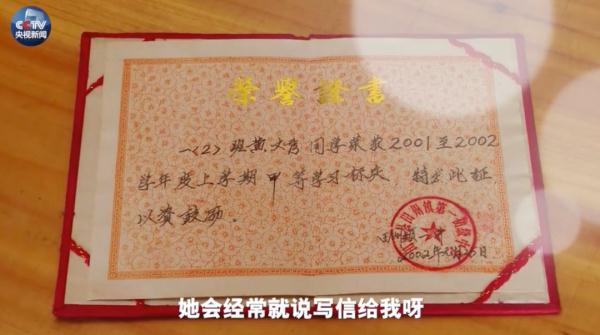 CCTV
央视新闻
荣誉證書
一(2)班黄文秀同学荣获2001至2002
学年度上学期甲等学习标兵,特发此证,
以资鼓励。
2002年
她会经常就说写信给我呀